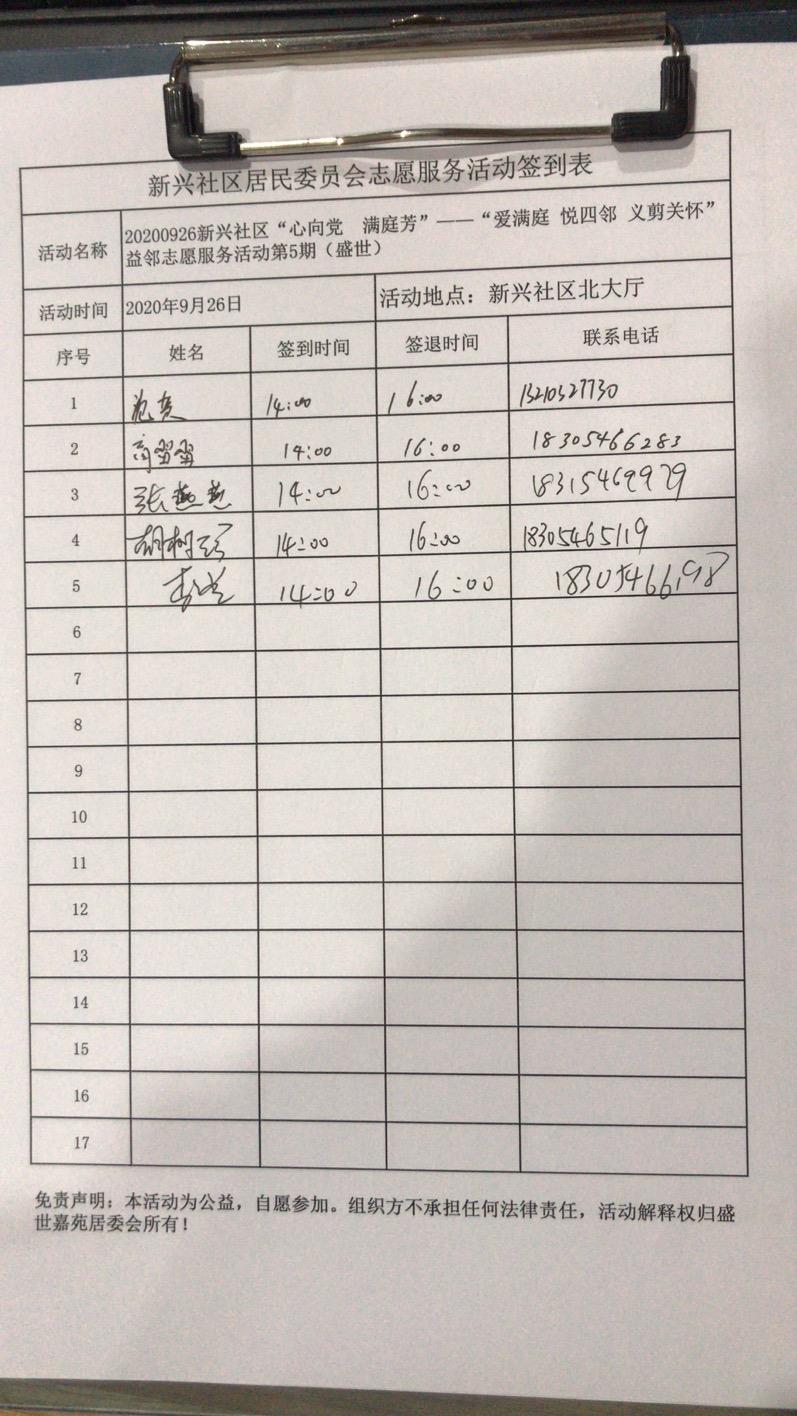 新兴社区居民委员会志愿服务活动签到表
活动名称 20200926新兴社区“心向党 满庭芳”——“爱满庭 悦四邻 义剪关怀”
益邻志愿服务活动第5期（盛世）
活动时间 2020年9月26日 活动地点：新兴社区北大厅
序号 姓名 签到时间 签退时间 联系电话
1 14:00 16:00 13210327730
2 14:00 16:00 18305466283
3 张燕燕 14:00 16:00 18315469979
4 14:00 16:00 18305465119
5 14:00 16:00
6
7
8
9
10
11
12
13
14
15
16
17
免责声明：本活动为公益，自愿参加。组织方不承担任何法律责任，活动解释权归盛
世嘉苑居委会所有！